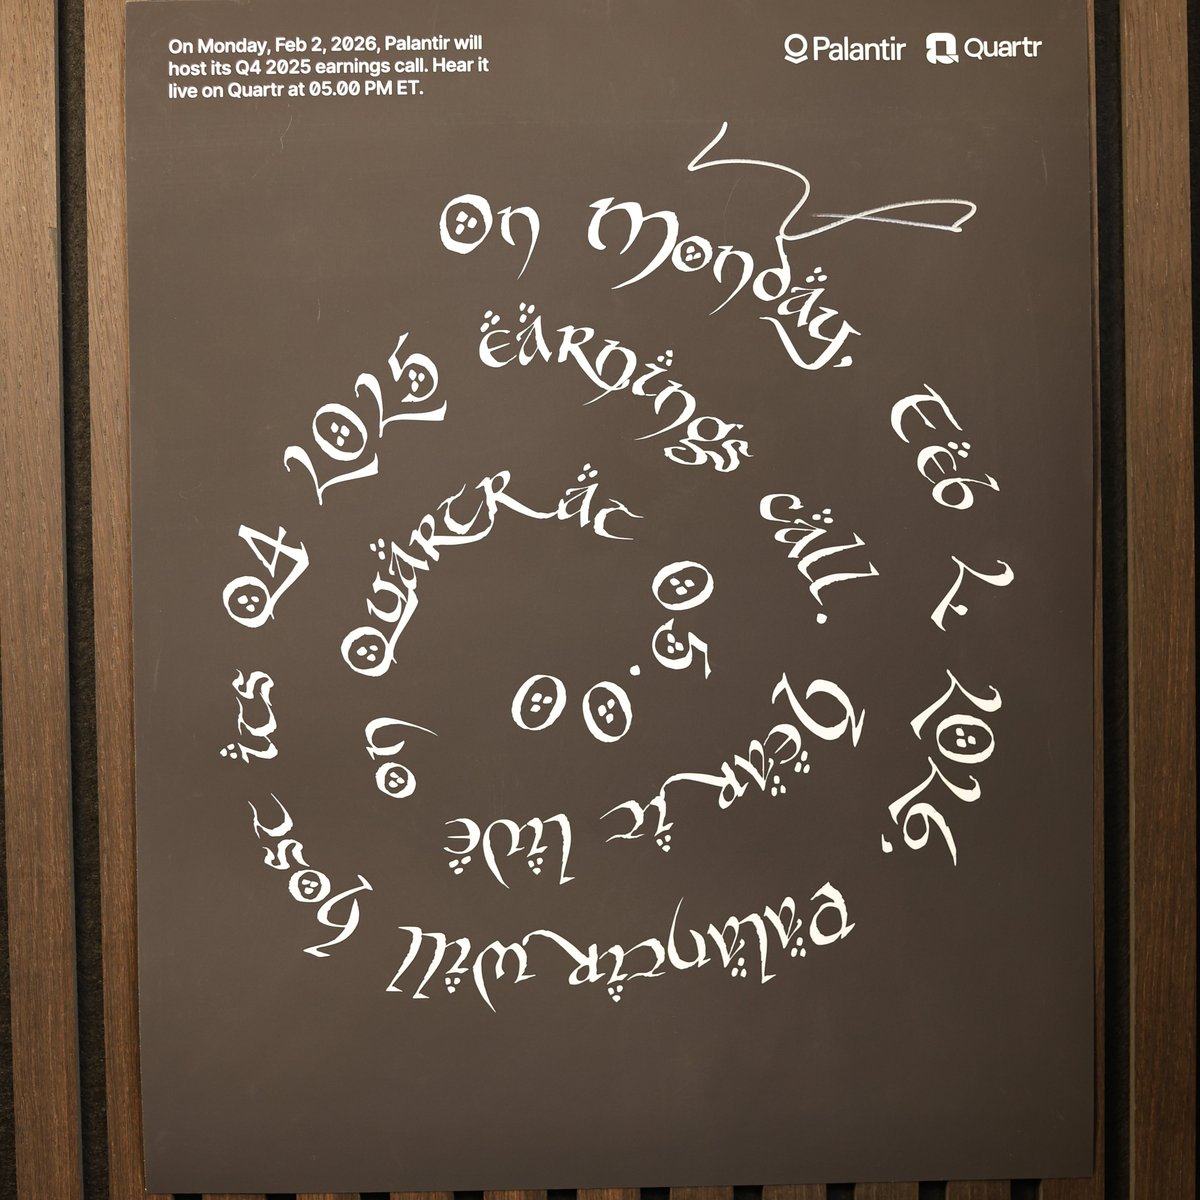 On Monday, Feb 2, 2026, Palantir will
host its Q4 2025 earnings call. Hear it
live on Quartr at 05.00 PM ET.
Palantir
Quartr
On Monday, Feb 2, 2026, Palantir will host its Q4 2025 earnings call. Hear it live on Quartr at 05.00